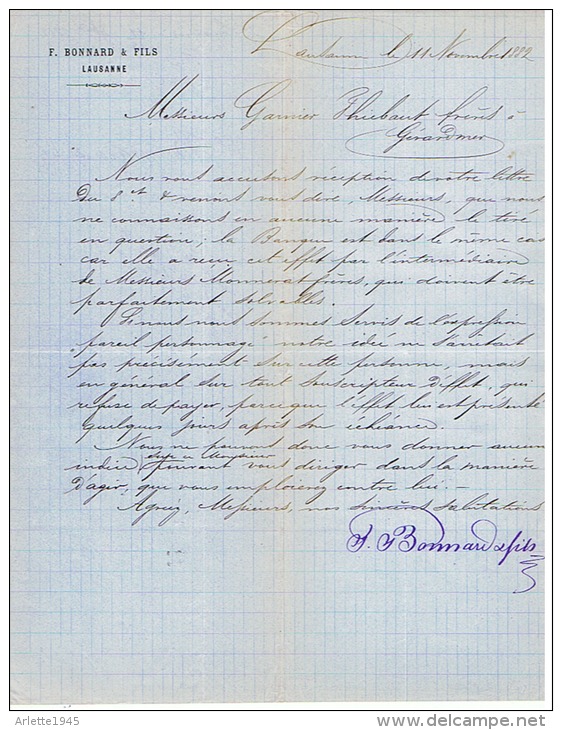 F. BONNARD & FILS
LAUSANNE
Lausanne le 11 Novembre 1882
Messieurs Garnier Thiebaut frères à
Gérardmer
Nous vous accusons réception de votre lettre
du 8 ct & venons vous dire, Messieurs, que nous
ne connaissons en aucune manière le tiré
en question; la Banque est dans le même cas
car elle a reçu cet effet par l'intermédiaire
de Messieurs Monnerat frères, qui doivent être
parfaitement solvables.
Si nous nous sommes servis de l'expression
pareil personnage notre idée ne s'arrêtait
pas précisément sur cette personne, mais
en général sur tout souscripteur d'effet, qui
refuse de payer, parce que l'effet lui est présenté
quelques jours après son échéance.
Nous ne pouvons donc vous donner aucun
sur ce Monsieur
indice pouvant vous diriger dans la manière
d'agir, que vous emploierez contre lui. –
Agréez, Messieurs, nos sincères salutations
F. Bonnard & fils
Arlette1945
delcampe.net